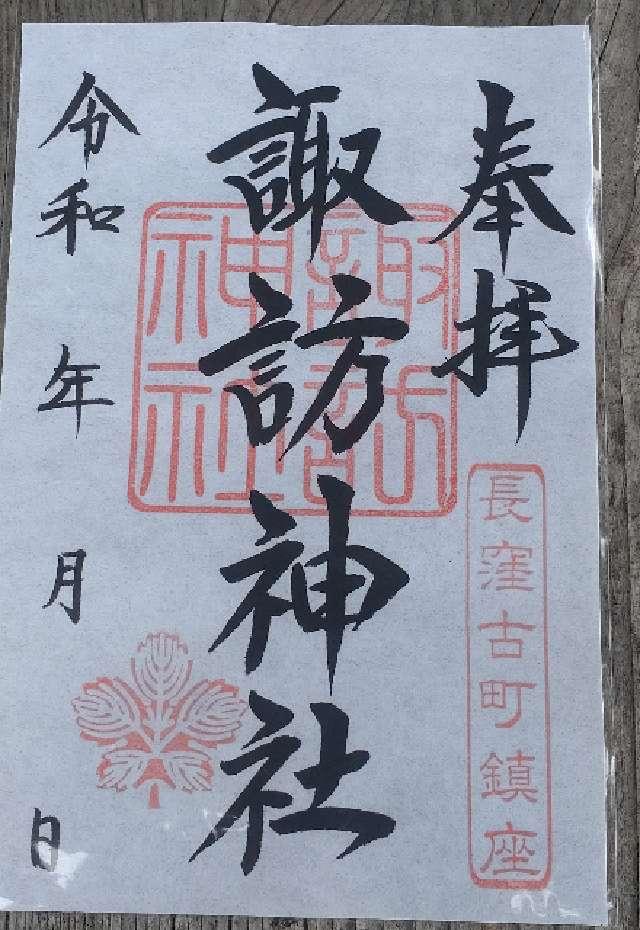 奉拝
長窪古町鎮座
諏訪神社
諏訪
神社
令和 年 月 日